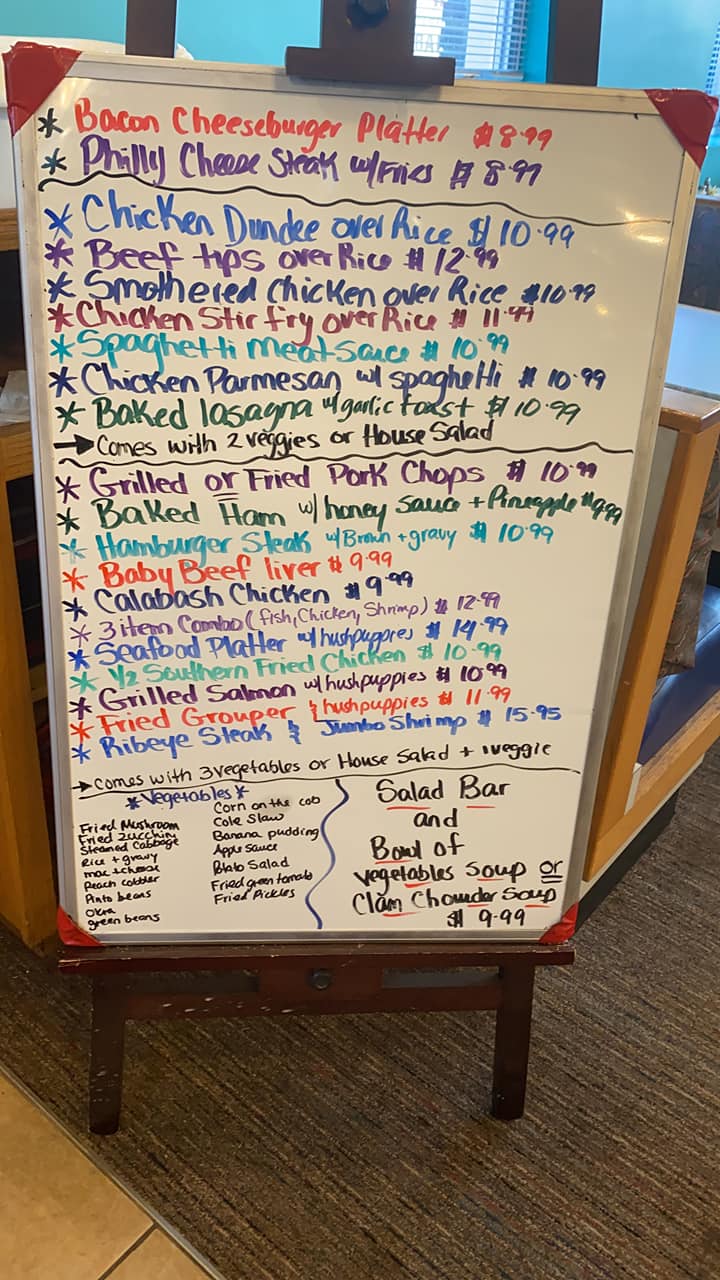 * Bacon Cheeseburger Platter $8.99
* Philly Cheese Steak w/Fries $8.99
* Chicken Dundee over Rice $10.99
* Beef tips over Rice $12.99
* Smothered chicken over Rice $10.99
* Chicken Stir fry over Rice $11.99
* Spaghetti Meat Sauce $10.99
* Chicken Parmesan w/ spaghetti $10.99
* Baked lasagna w/garlic toast $10.99
→ Comes with 2 veggies or House Salad
* Grilled or Fried Pork Chops $10.99
* Baked Ham w/honey Sauce + Pineapple $9.99
* Hamburger Steak w/Brown + gravy $10.99
* Baby Beef liver $9.99
* Calabash Chicken $9.99
* 3 item Combo (fish, Chicken, Shrimp) $12.99
* Seafood Platter w/hushpuppies $14.99
* 1/2 Southern Fried Chicken $10.99
* Grilled Salmon w/hushpuppies $10.99
* Fried Grouper & hushpuppies $11.99
* Ribeye Steak & Jumbo Shrimp $15.95
→ Comes with 3 vegetables or House Salad + 1 veggie
* Vegetables *
Fried Mushroom
Fried zucchini
Steamed Cabbage
Rice + gravy
mac + cheese
Peach cobbler
Pinto beans
Okra
green beans
Corn on the cob
Cole Slaw
Banana pudding
Apple Sauce
Potato Salad
Fried green tomato
Fried Pickles
Salad Bar
and
Bowl of
vegetables Soup or
Clam Chowder Soup
$9.99